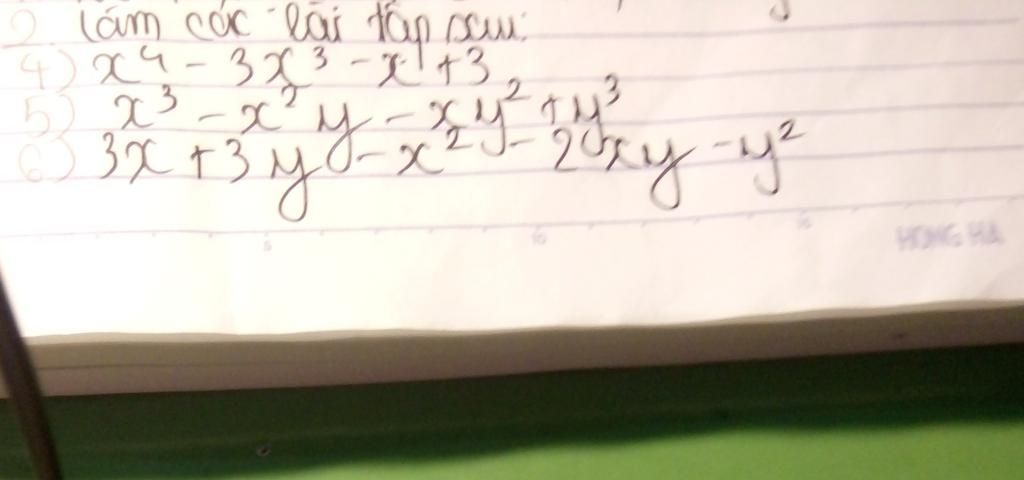 2. Làm các bài tập sau:
4) x⁴ - 3x³ - x + 3
5) x³ - x²y - xy² + y³
6) 3x + 3y - x² - 2xy - y²
5 10 15
HONG HA